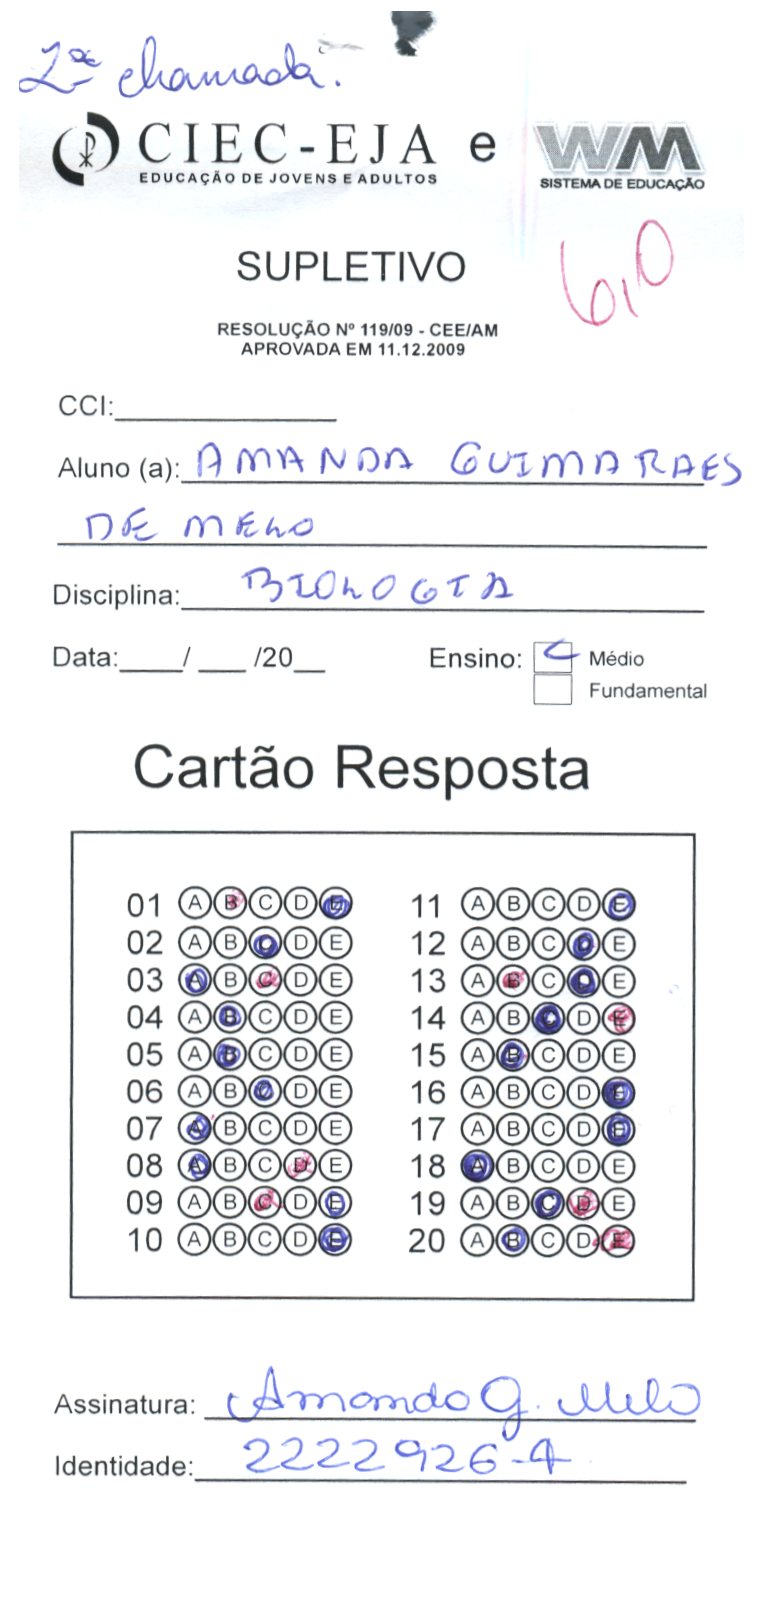 2ª chamada.
CIEC-EJA e WM
EDUCAÇÃO DE JOVENS E ADULTOS
SISTEMA DE EDUCAÇÃO
SUPLETIVO
6,0
RESOLUÇÃO Nº 119/09 - CEE/AM
APROVADA EM 11.12.2009
CCI:
Aluno (a): AMANDA GUIMARAES
DE MELO
Disciplina: BIOLOGIA
Data:____/ ___ /20__ Ensino: Médio
Fundamental
Cartão Resposta
01 A B C D E 11 A B C D E
02 A B C D E 12 A B C D E
03 A B C D E 13 A B C D E
04 A B C D E 14 A B C D E
05 A B C D E 15 A B C D E
06 A B C D E 16 A B C D E
07 A B C D E 17 A B C D E
08 A B C D E 18 A B C D E
09 A B C D E 19 A B C D E
10 A B C D E 20 A B C D E
Assinatura: Amanda G. Melo
Identidade: 2222926-4